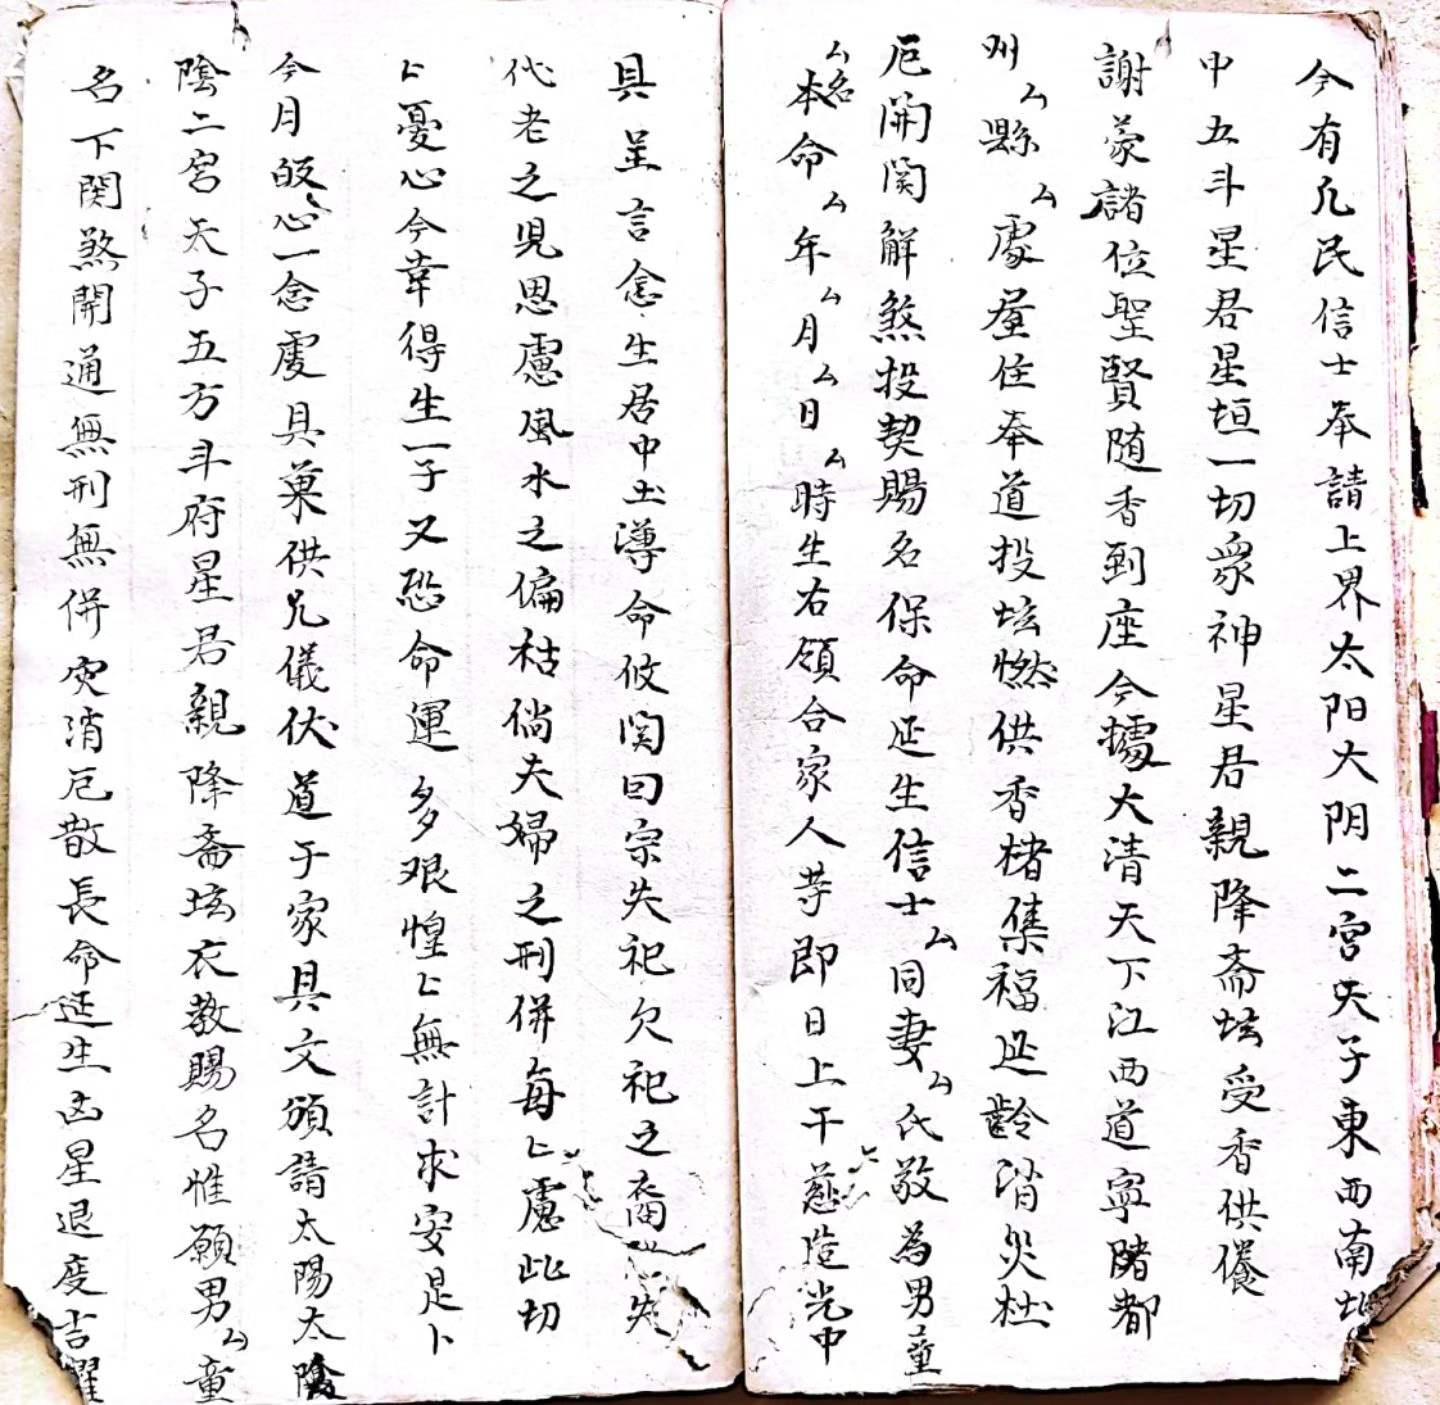 今有凡民信士奉請上界太阳大阴二宫天子東西南北
中五斗星君星垣一切衆神星君親降斋坛受香供養
謝蒙諸位聖賢随香到座今據大清天下江西道寧都
州厶縣厶處厶屋住奉道投坛燃供香楮集福延齡消災杜
厄開関解煞投契賜名保命延生信士厶同妻厶氏敬為男童
厶名本命厶年厶月厶日厶時生右領合家人等即日上干慈造光中
具呈言念生居中土溥命攸関曰宗失祀欠祀之裔失
代老之児思慮風水之偏枯倘夫婦之刑併每匕慮此切
匕憂心今幸得生一子又恐命運多艰惶匕無計求安是卜
今月皈心一念虔具菓供凡儀伏道于家具文頒請太陽太陰
陰二宮天子五方斗府星君親降斋坛衣教賜名惟願男厶童
名下関煞開通無刑無併灾消厄散長命延生凶星退度吉躍